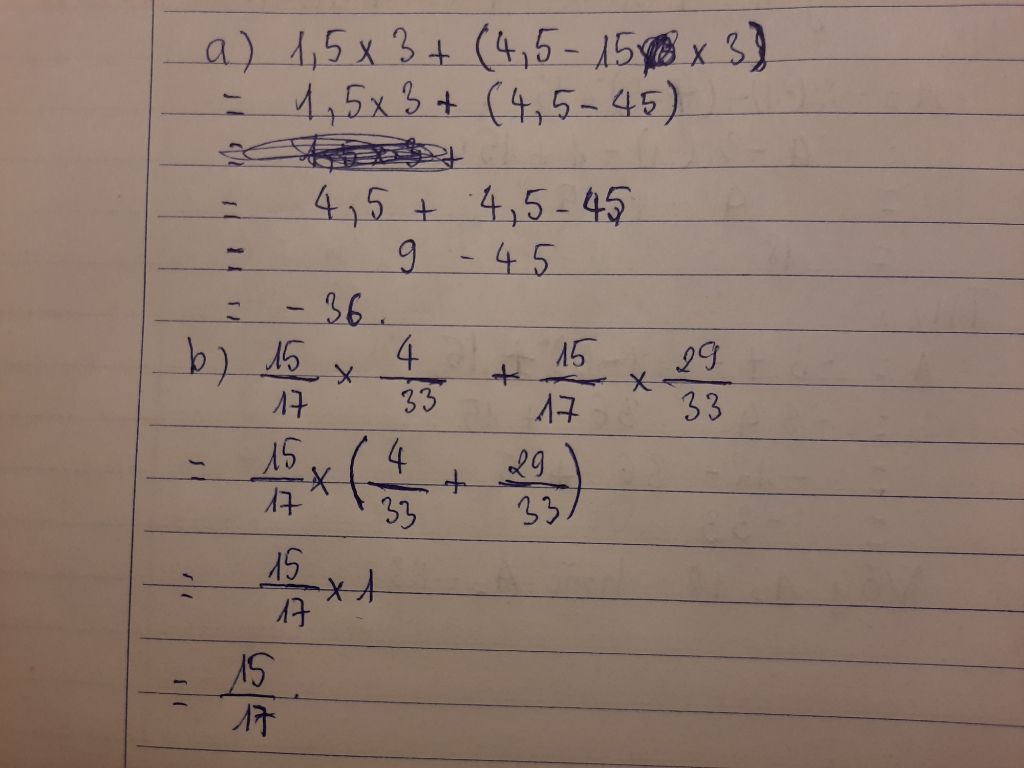 a) 1,5 x 3 + (4,5 - 15 x 3)
= 1,5 x 3 + (4,5 - 45)
= +
= 4,5 + 4,5 - 45
= 9 - 45
= - 36.
b) 15/17 x 4/33 + 15/17 x 29/33
= 15/17 x (4/33 + 29/33)
= 15/17 x 1
= 15/17.